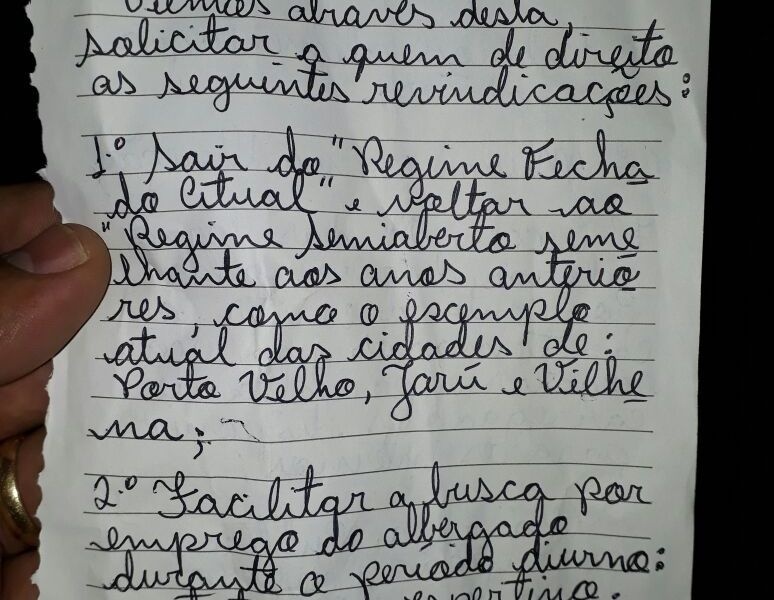 Viemos através desta,
solicitar a quem de direito
as seguintes revindicações:
1.º Sair do "Regime Fecha
do Citual" e voltar ao
"Regime Semiaberto seme
lhante aos anos anterio
res, como o escemplo
atuál das cidades de:
Porto Velho, Jarú e Vilhe
na;
2.º Facilitar a busca por
emprego do albergado
durante o período diurno:
espertino.